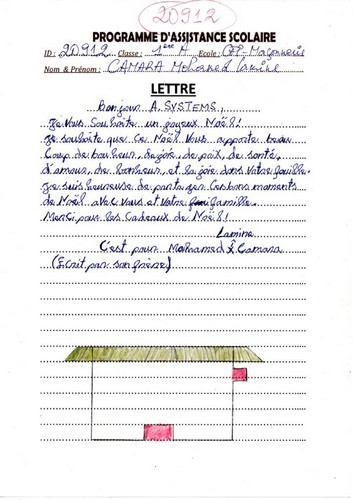 20912
PROGRAMME D'ASSISTANCE SCOLAIRE
ID : 20912 Classe : 1ère A Ecole : CFP-Maçonnerie
Nom & Prénom : CAMARA Mohamed Lamine
LETTRE
Bonjour A. SYSTEMS,
Je Vous Souhaite un joyeux Noël!
Je souhaite que ce Noël Vous apporte beau
Coup de bonheur, de joie, de paix, de santé,
d'amour, de bonheur, et la joie dans Votre famille.
Je suis heureuse de partager ces bons moments
de Noël avec Vous et Votre famille.
Merci pour les Cadeaux de Noël!
Lamine
C'est pour Mohamed L Camara
(Ecrit par son frère)